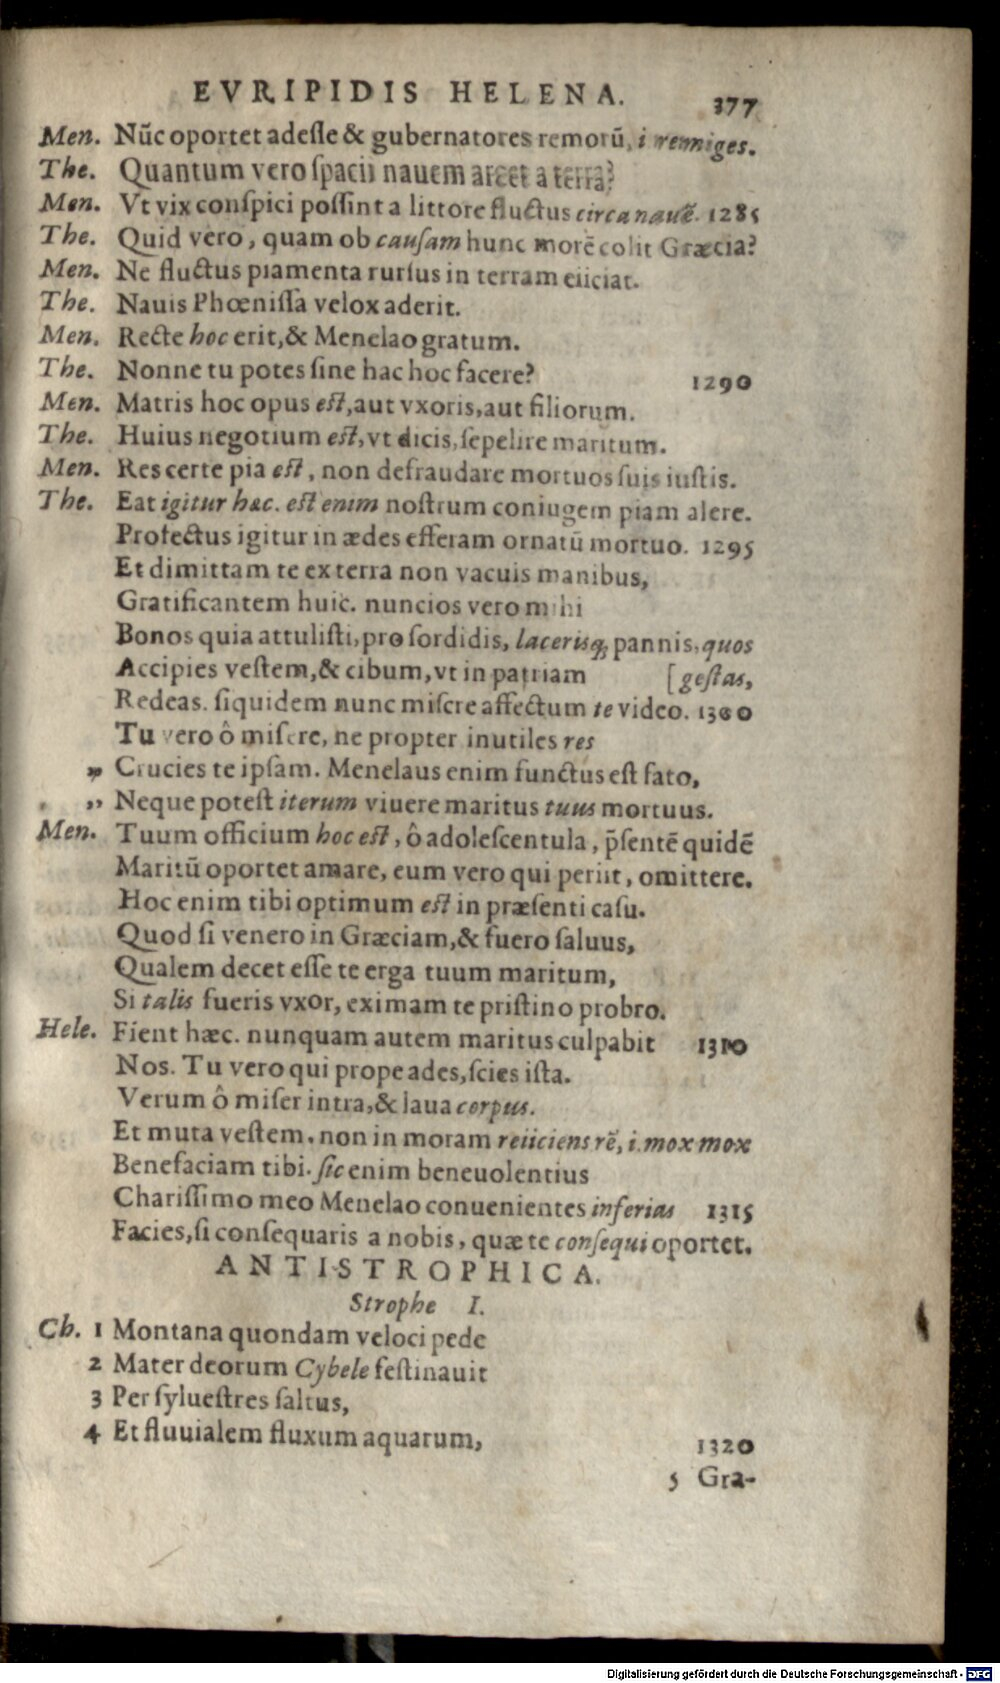 EVRIPIDIS HELENA. 377
Men. Nūc oportet adesse & gubernatores remorū, i remiges.
The. Quantum vero spacii nauem arcet a terra?
Men. Vt vix conspici possint a littore fluctus circa nauē. 1285
The. Quid vero, quam ob causam hunc morē colit Græcia?
Men. Ne fluctus piamenta rursus in terram eiiciat.
The. Nauis Phœnissa velox aderit.
Men. Recte hoc erit, & Menelao gratum.
The. Nonne tu potes sine hac hoc facere? 1290
Men. Matris hoc opus est, aut vxoris, aut filiorum.
The. Huius negotium est, vt dicis, sepelire maritum.
Men. Res certe pia est, non defraudare mortuos suis iustis.
The. Eat igitur hæc. est enim nostrum coniugem piam alere.
Profectus igitur in ædes efferam ornatū mortuo. 1295
Et dimittam te ex terra non vacuis manibus,
Gratificantem huic. nuncios vero mihi
Bonos quia attulisti, pro sordidis, lacerisq; pannis, quos
Accipies vestem, & cibum, vt in patriam [gestas,
Redeas. siquidem nunc misere affectum te video. 1300
Tu vero ô misere, ne propter inutiles res
„ Crucies te ipsam. Menelaus enim functus est fato,
„ Neque potest iterum viuere maritus tuus mortuus.
Men. Tuum officium hoc est, ô adolescentula, p̄sentē quidē
Maritū oportet amare, eum vero qui periit, omittere.
Hoc enim tibi optimum est in præsenti casu.
Quod si venero in Græciam, & fuero saluus,
Qualem decet esse te erga tuum maritum,
Si talis fueris vxor, eximam te pristino probro.
Hele. Fient hæc. nunquam autem maritus culpabit 1310
Nos. Tu vero qui prope ades, scies ista.
Verum ô miser intra, & laua corpus.
Et muta vestem. non in moram reiiciens rē, i. mox mox
Benefaciam tibi. sic enim beneuolentius
Charissimo meo Menelao conuenientes inferias 1315
Facies, si consequaris a nobis, quæ te consequi oportet.
ANTISTROPHICA.
Strophe I.
Ch. 1 Montana quondam veloci pede
2 Mater deorum Cybele festinauit
3 Per syluestres saltus,
4 Et fluuialem fluxum aquarum, 1320
5 Gra-
Digitalisierung gefördert durch die Deutsche Forschungsgemeinschaft - DFG